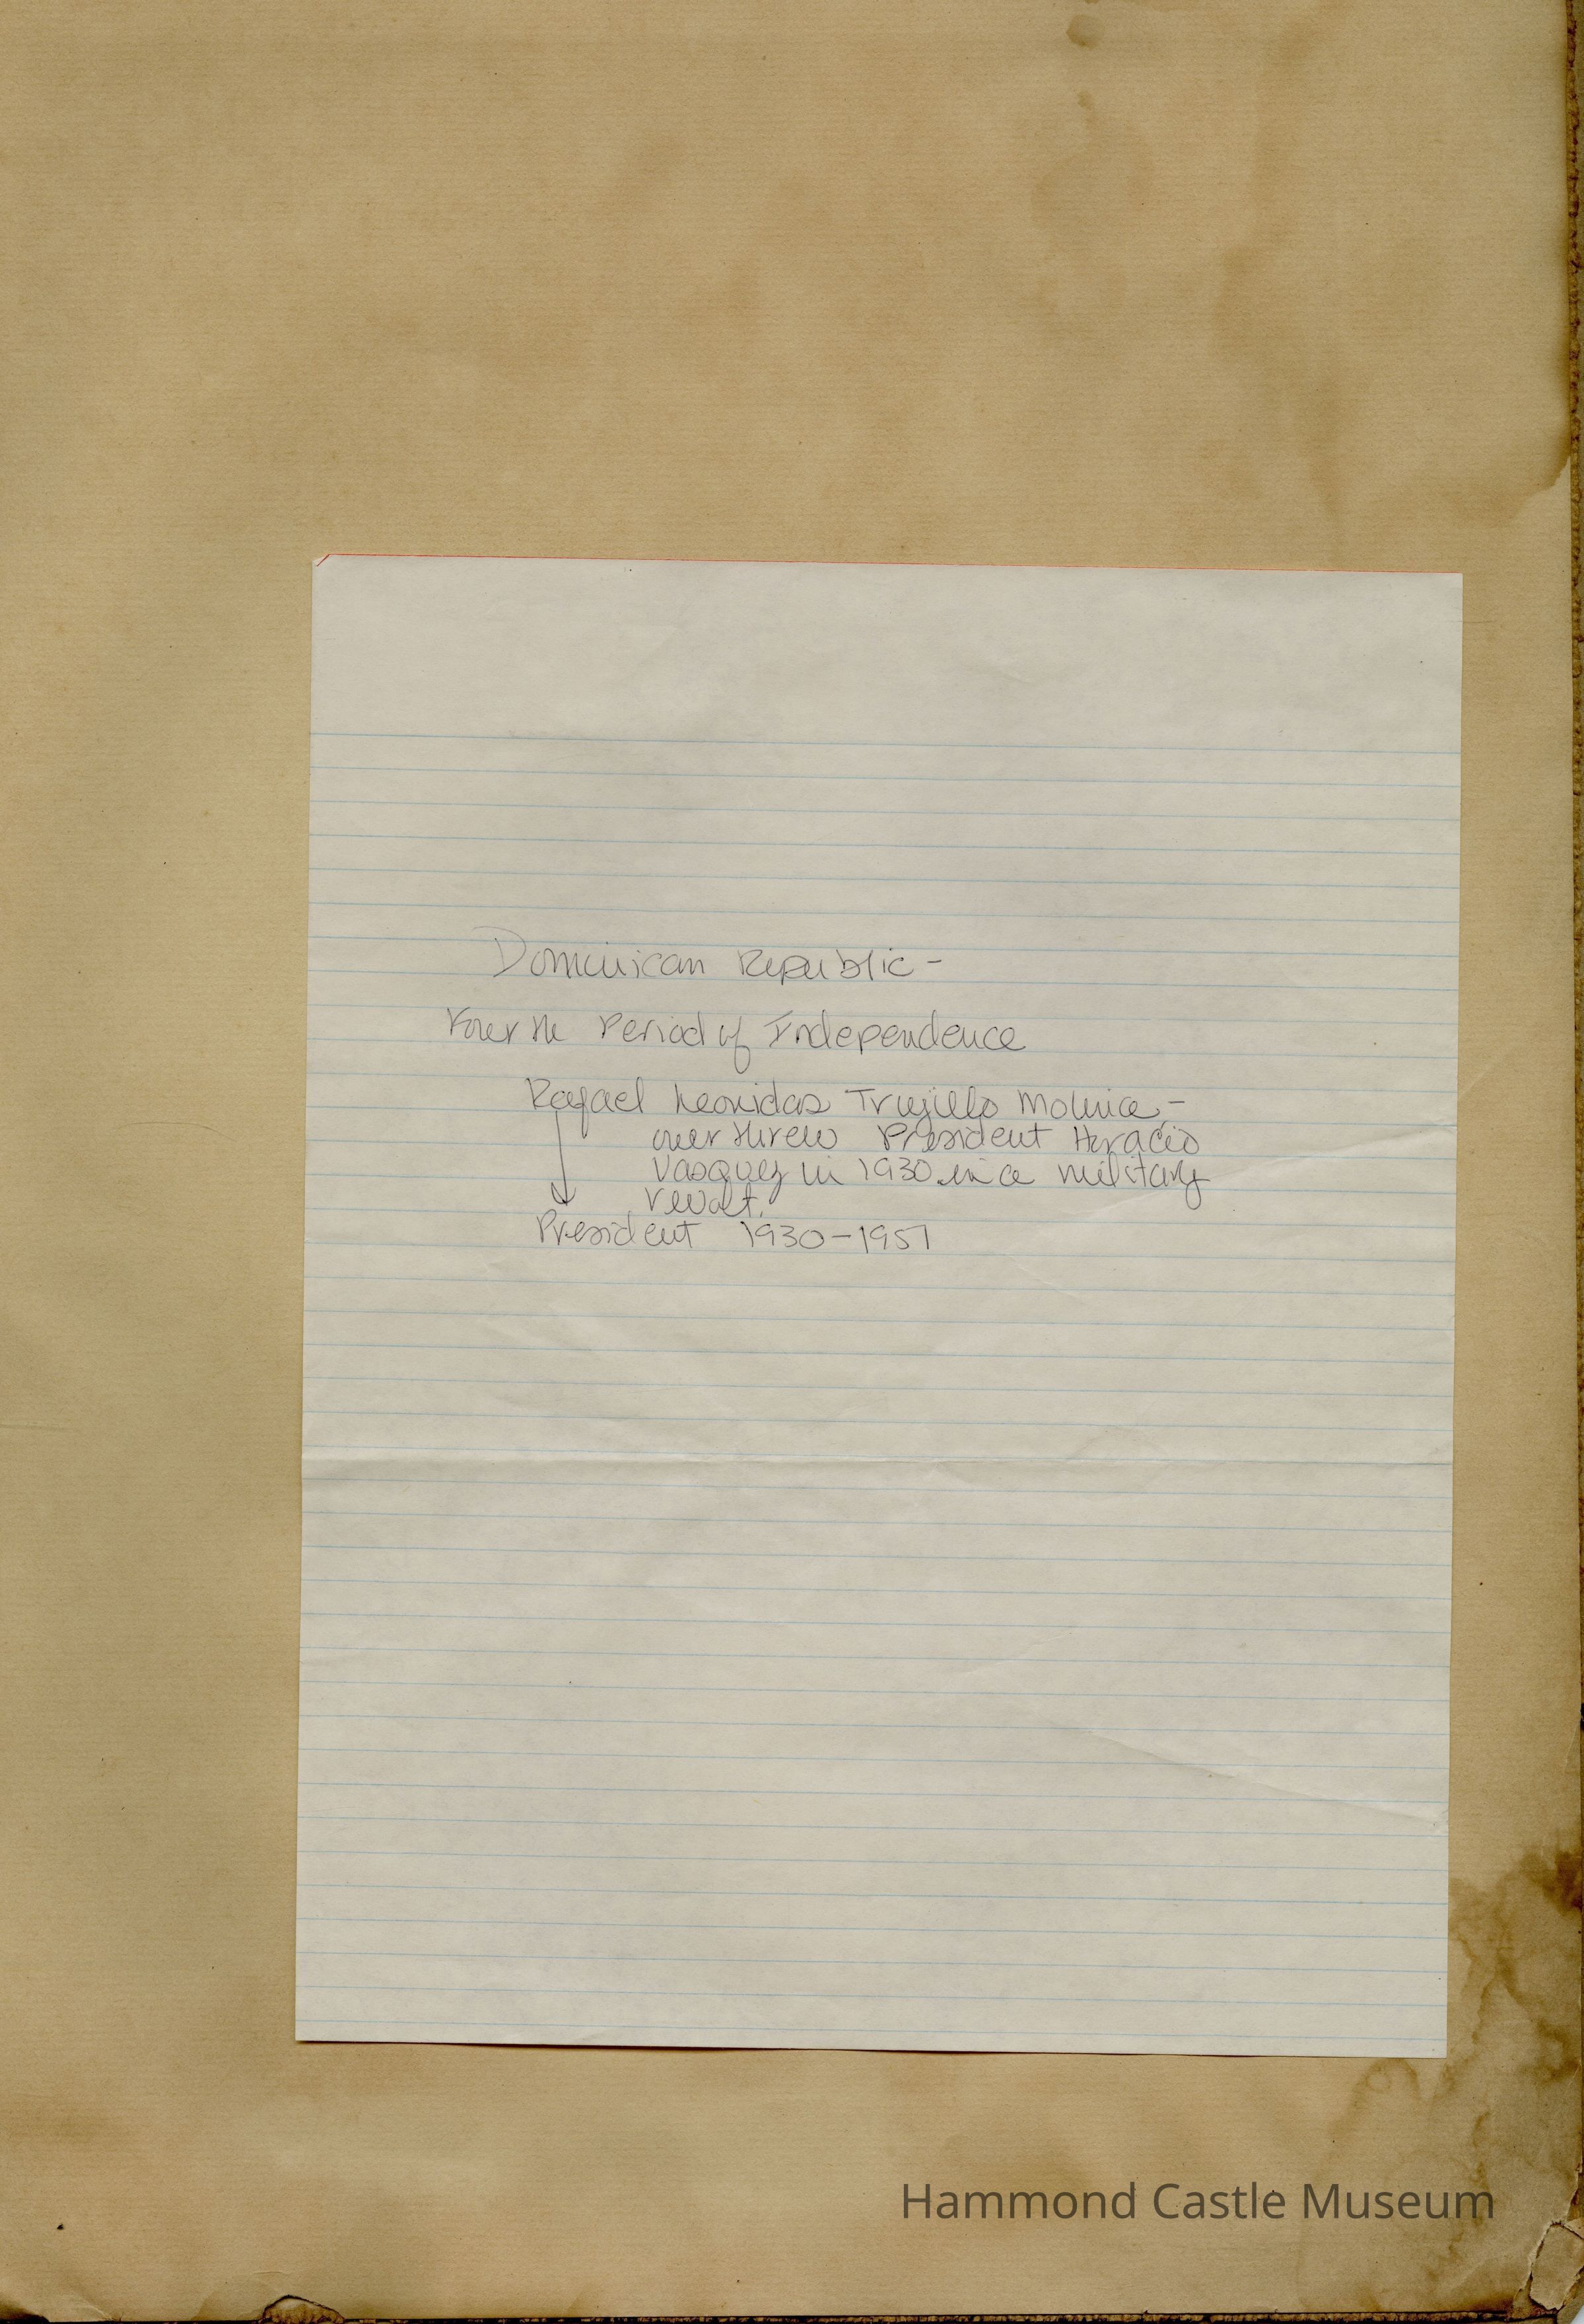 Dominican Republic -
Period of Independence
Rafael Leonidas Trujillo Molina -
overthrew President Horacio
Vasquez in 1930 in a military
revolt.
President 1930-1951
Hammond Castle Museum